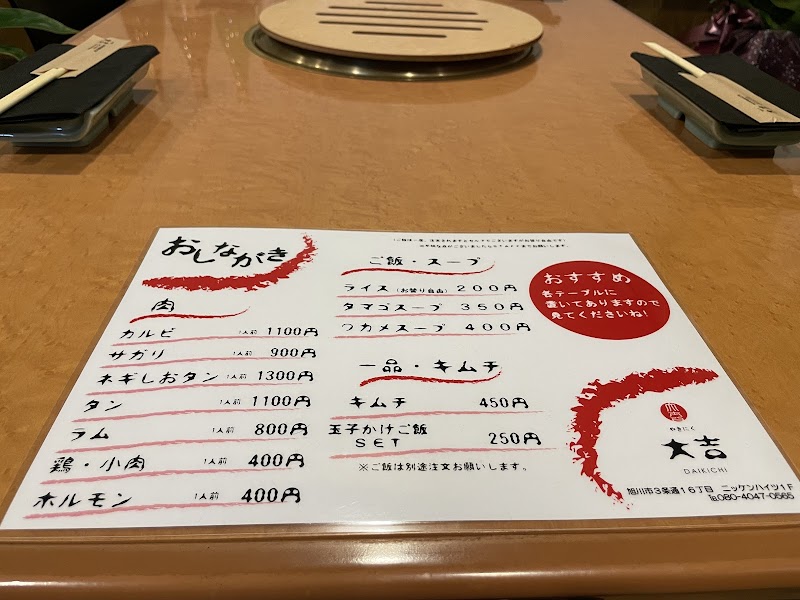 おしながき
肉
カルビ 1人前 1100円
サガリ 1人前 900円
ネギしおタン 1人前 1300円
タン 1人前 1100円
ラム 1人前 800円
鶏・小肉 1人前 400円
ホルモン 1人前 400円
ご飯・スープ
ライス(お替り自由) 200円
タマゴスープ 350円
ワカメスープ 400円
一品・キムチ
キムチ 450円
玉子かけご飯
SET 250円
※ご飯は別途注文お願いします。
おすすめ
各テーブルに
置いてありますので
見てくださいね!
やきにく
大吉
DAIKICHI
旭川市3条通16丁目 ニッケンハイツ1F
℡080-4047-0565